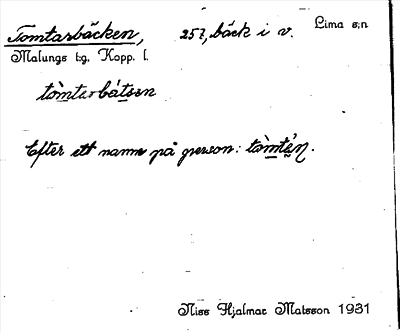 Tomtarbäcken, 251, bäck i v. Lima s:n
Malungs t:g. Kopp. l.
tòmtarbátsen
Efter ett namn på person: tòmtén.
Niss Hjalmar Matsson 1931